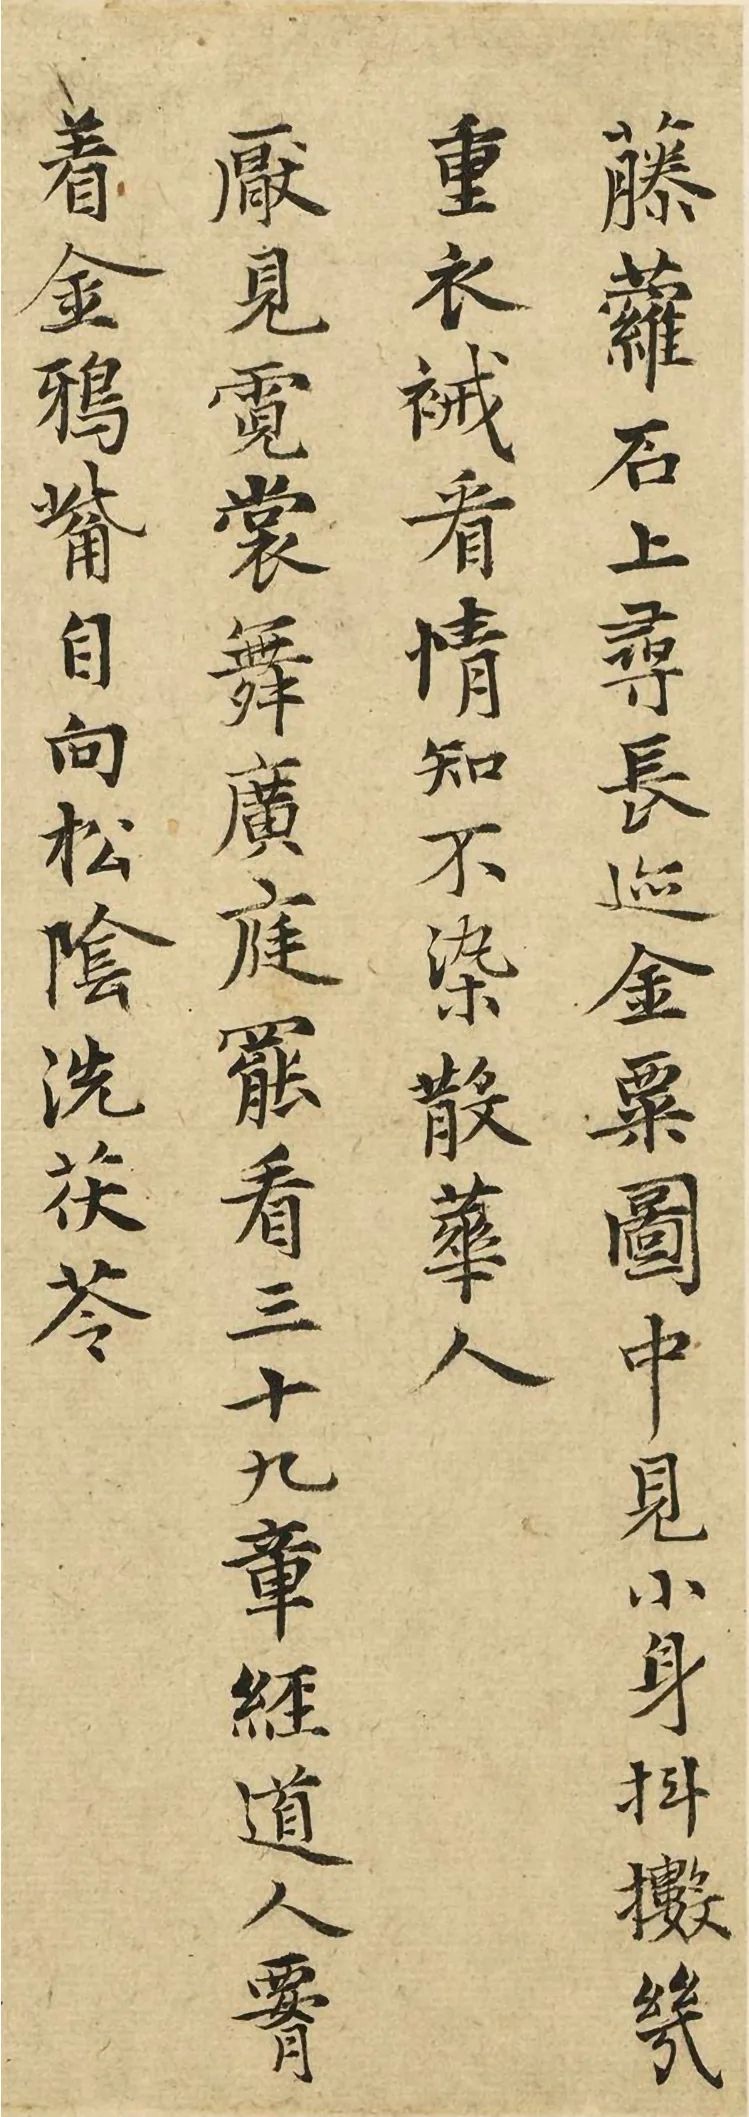 藤蘿石上尋長迹金粟圖中見小身抖擻幾
重衣祴看情知不染散華人
厭見霓裳舞廣庭罷看三十九章經道人腰
着金鴉觜自向松陰洗茯苓